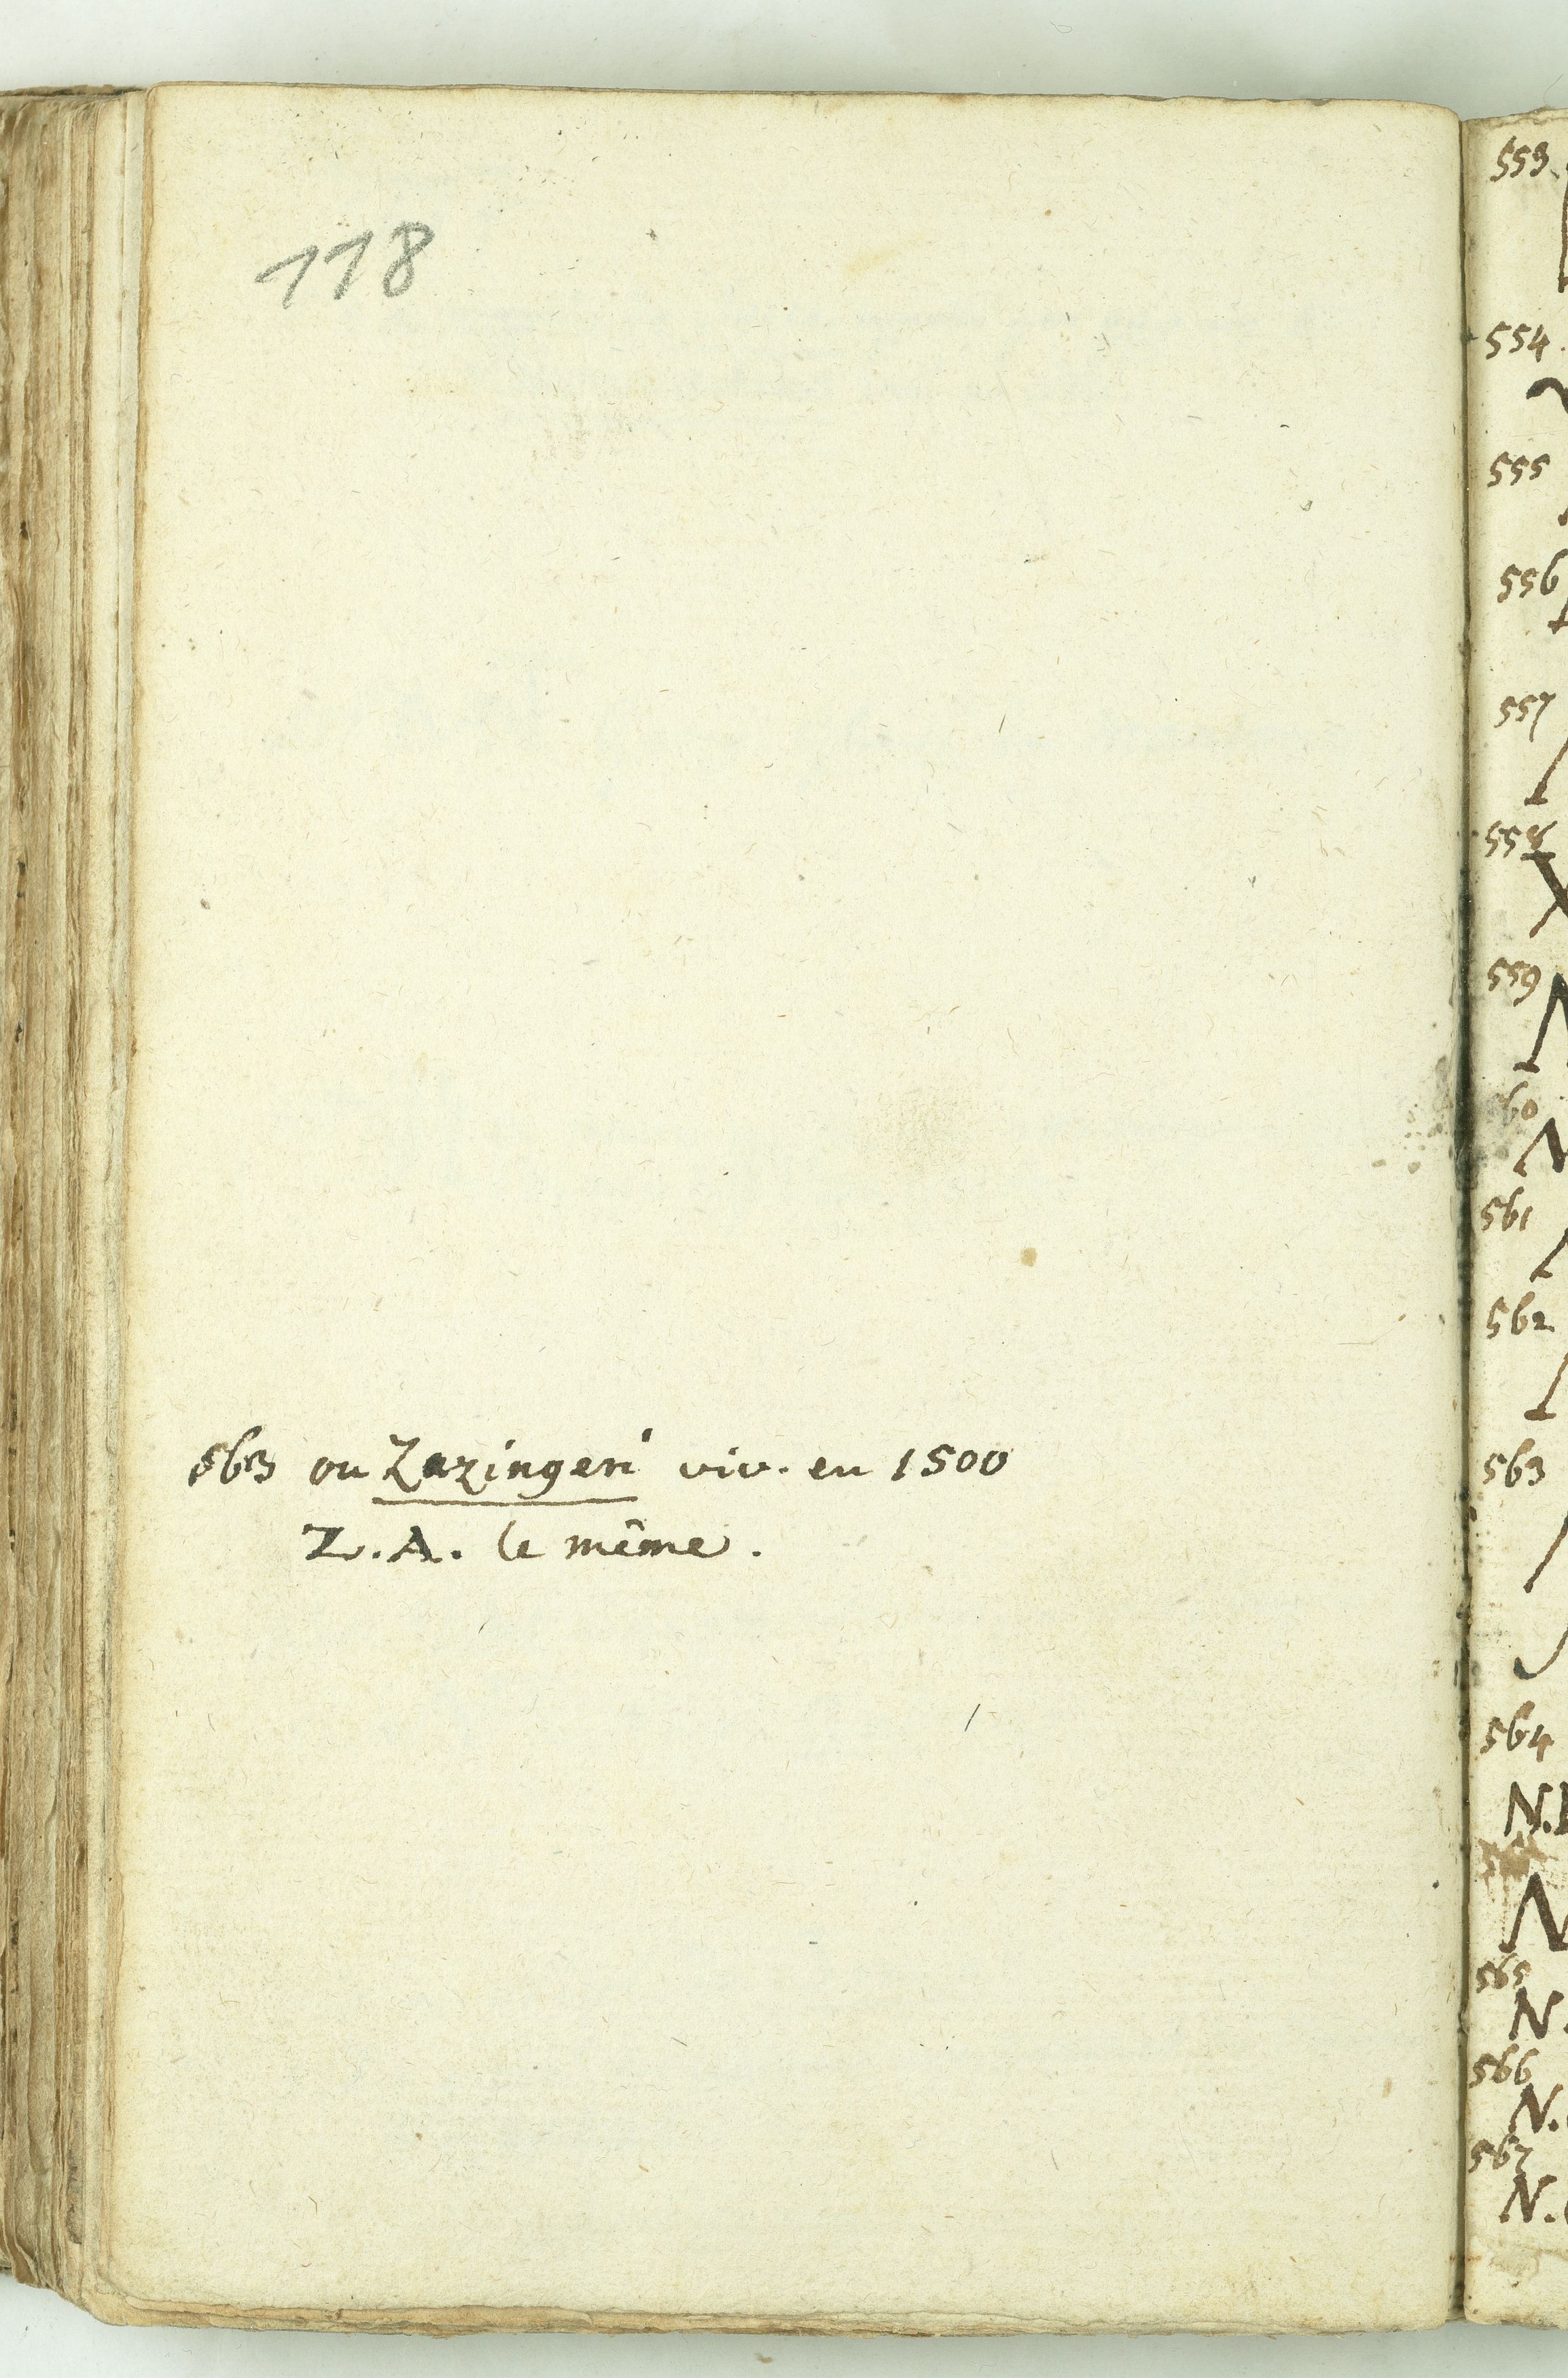 118
563 ou Zazingeri viv. en 1500
Z. A. le même.
553.
554.
555
556
557
558
559
60
561
562
563
564
N.
N
565
N.
566
N.
567
N.